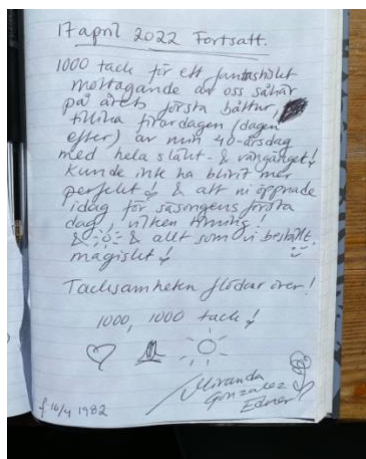 17 april 2022 Fortsatt.
1000 tack för ett fantastiskt
mottagande av oss såhär
på årets första båttur,
tillika firardagen (dagen
efter) av min 40-årsdag
med hela släkt- & vängänget!
Kunde inte ha blivit mer
perfekt! & att ni öppnade
idag för säsongens första
dag, vilken timing.
& & allt som vi beställt.
magiskt!
Tacksamheten flödar över!
1000, 1000 tack!
Miranda
Gonzalez
Edner
f 16/4 1982